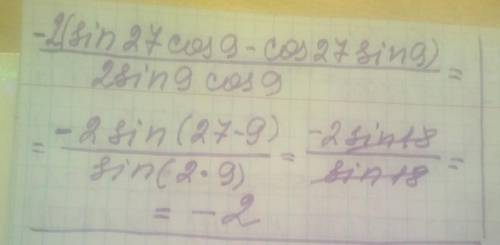 -2(sin 27 cos 9 - cos 27 sin 9) / 2 sin 9 cos 9 =
= -2 sin (27-9) / sin (2·9) = -2 sin 18 / sin 18 =
= -2